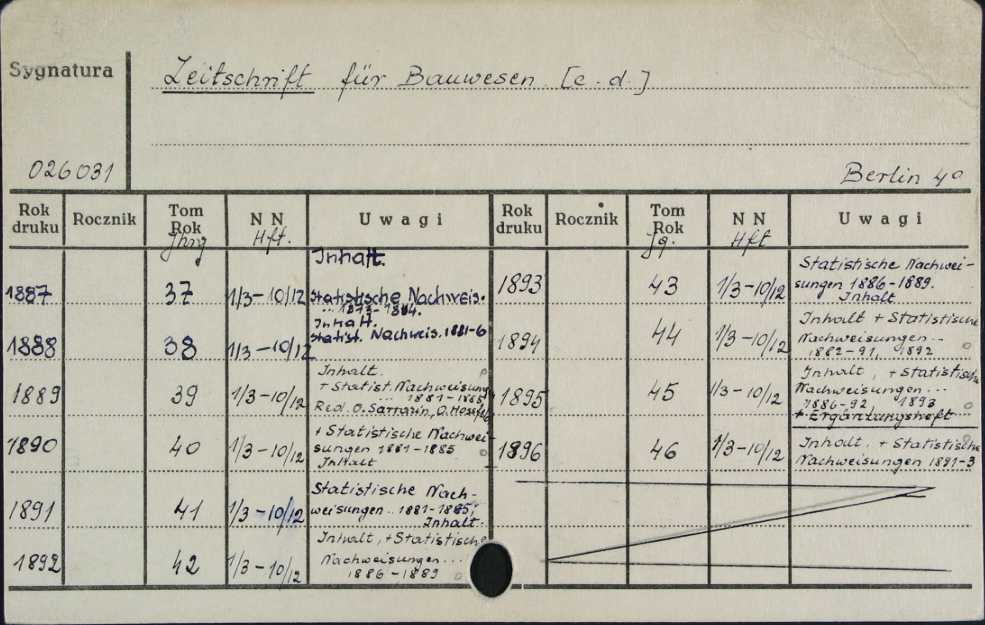 Sygnatura
Zeitschrift für Bauwesen. [c.d.]
026031
Berlin 4°
Rok druku Rocznik Tom Rok NN Uwagi Rok druku Rocznik Tom Rok NN Uwagi
Jhrg Hft. Jg. Hft
Inhalt.
1887 37 1/3-10/12 Statistische Nachweis.
.. 1873-1884.
Inhalt.
1888 38 1/3-10/12 Statist. Nachweis. 1881-6
Inhalt.
1889 39 1/3-10/12 + Statist. Nachweisung
... 1881-1885,
Red. O. Sarrazin, O. Hossfeld
+ Statistische Nachwei-
1890 40 1/3-10/12 sungen 1881-1885
Inhalt
Statistische Nach-
1891 41 1/3-10/12 weisungen.. 1881-1885,
Inhalt.
Inhalt, + Statistische
1892 42 1/3-10/12 Nachweisungen...
1886-1889
Statistische Nachwei-
1893 43 1/3-10/12 sungen 1886-1889.
Inhalt
Inhalt + Statistische
1894 44 1/3-10/12 Nachweisungen..
1882-91, 1892
Inhalt, + Statistische
1895 45 1/3-10/12 Nachweisungen...
1886-92 1893
+ Ergänzungsheft
1896 46 1/3-10/12 Inhalt, + Statistische
Nachweisungen 1891-3